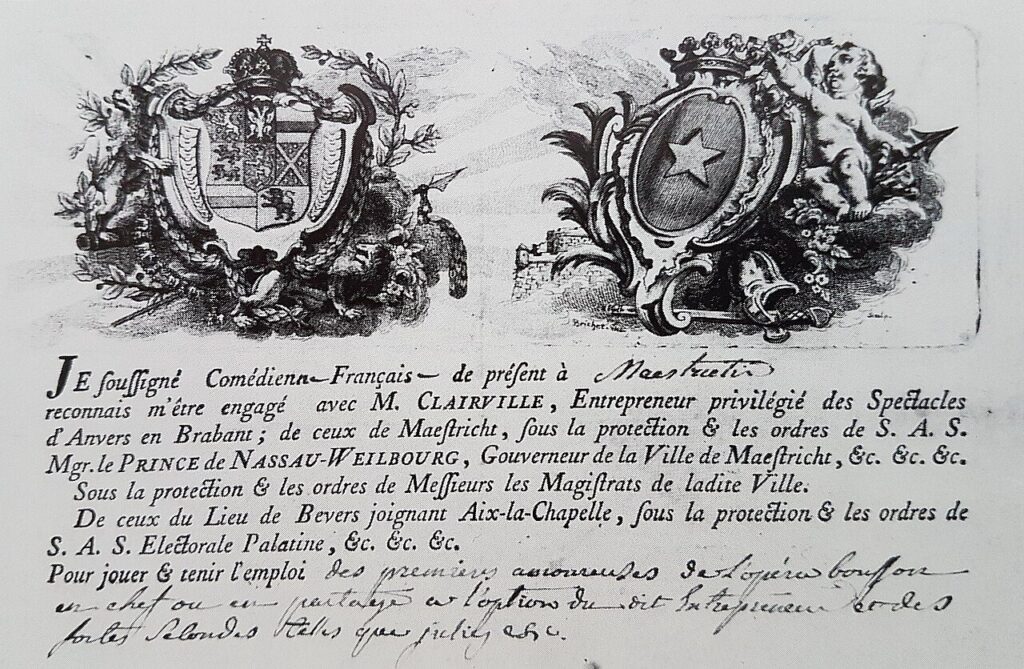 Brichet
Sculp.
JE ſouſſigné Comédienn Français de préſent à Maestricht
reconnais m'être engagé avec M. CLAIRVILLE, Entrepreneur privilégié des Spectacles
d'Anvers en Brabant; de ceux de Maeſtricht, ſous la protection & les ordres de S. A. S.
Mgr. le PRINCE de NASSAU-WEILBOURG, Gouverneur de la Ville de Maeſtricht, &c. &c. &c.
Sous la protection & les ordres de Meſſieurs les Magiſtrats de ladite Ville.
De ceux du Lieu de Bevers joignant Aix-la-Chapelle, ſous la protection & les ordres de
S. A. S. Electorale Palatine, &c. &c. &c.
Pour jouer & tenir l'emploi des premiers amoureuses de l'opéra bouffon
en chef ou en partage a l'option du dit Entrepreneur et des
fortes secondes telles que julie &c.